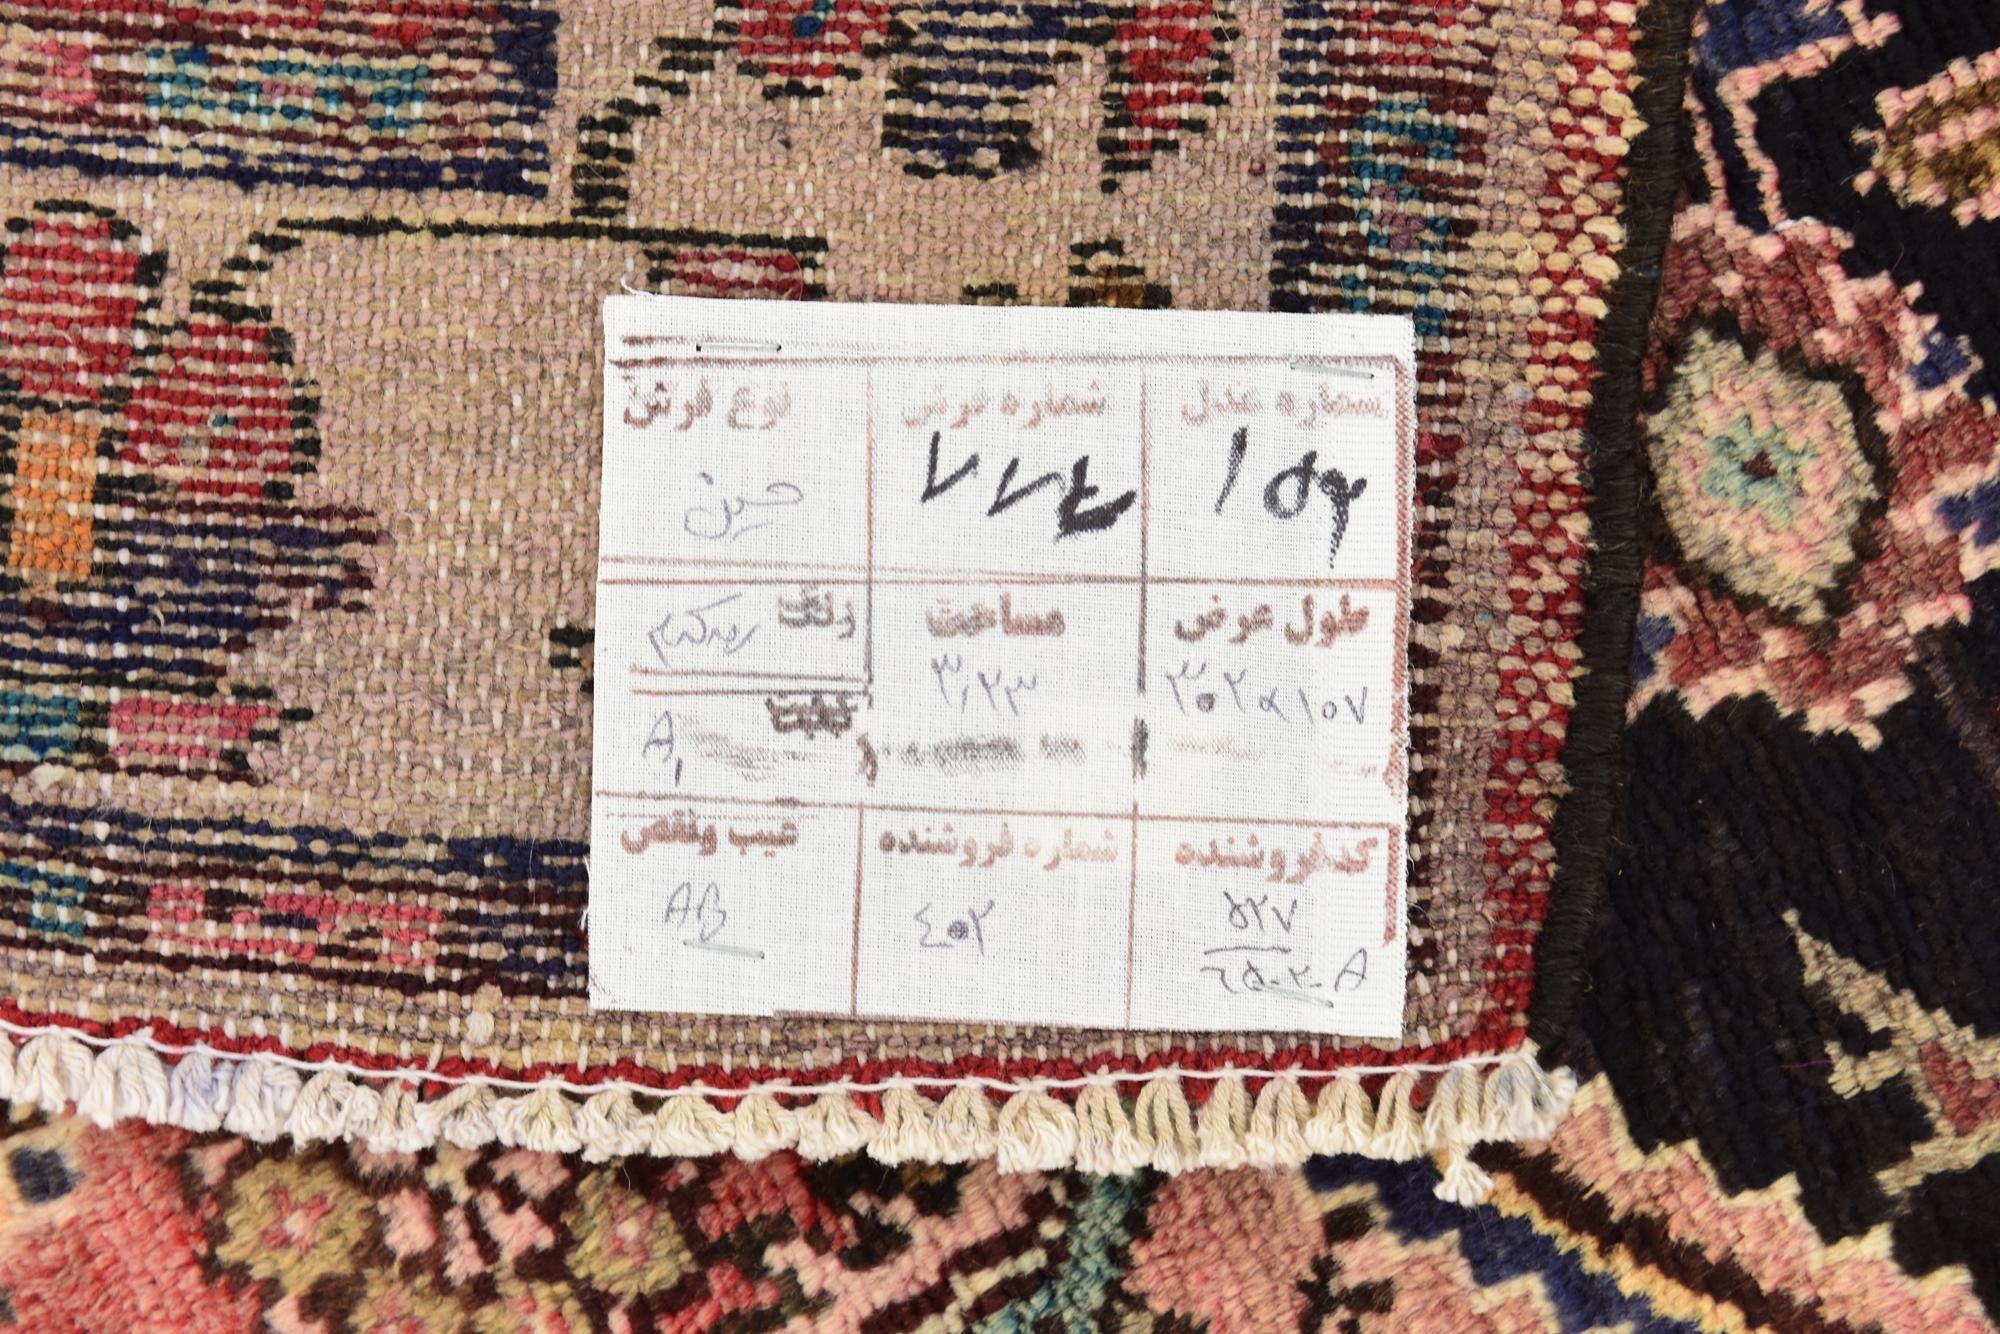 شماره عدل شماره فرش نوع فرش
۱۵۲ ۷۷۴ حسین
طول عرض مساحت رنگ
۳۰۲×۱۰۷ ۳,۲۳
A1
کد فروشنده شماره فروشنده عیب و نقص
۵۲۷ ٤۰۲ AB